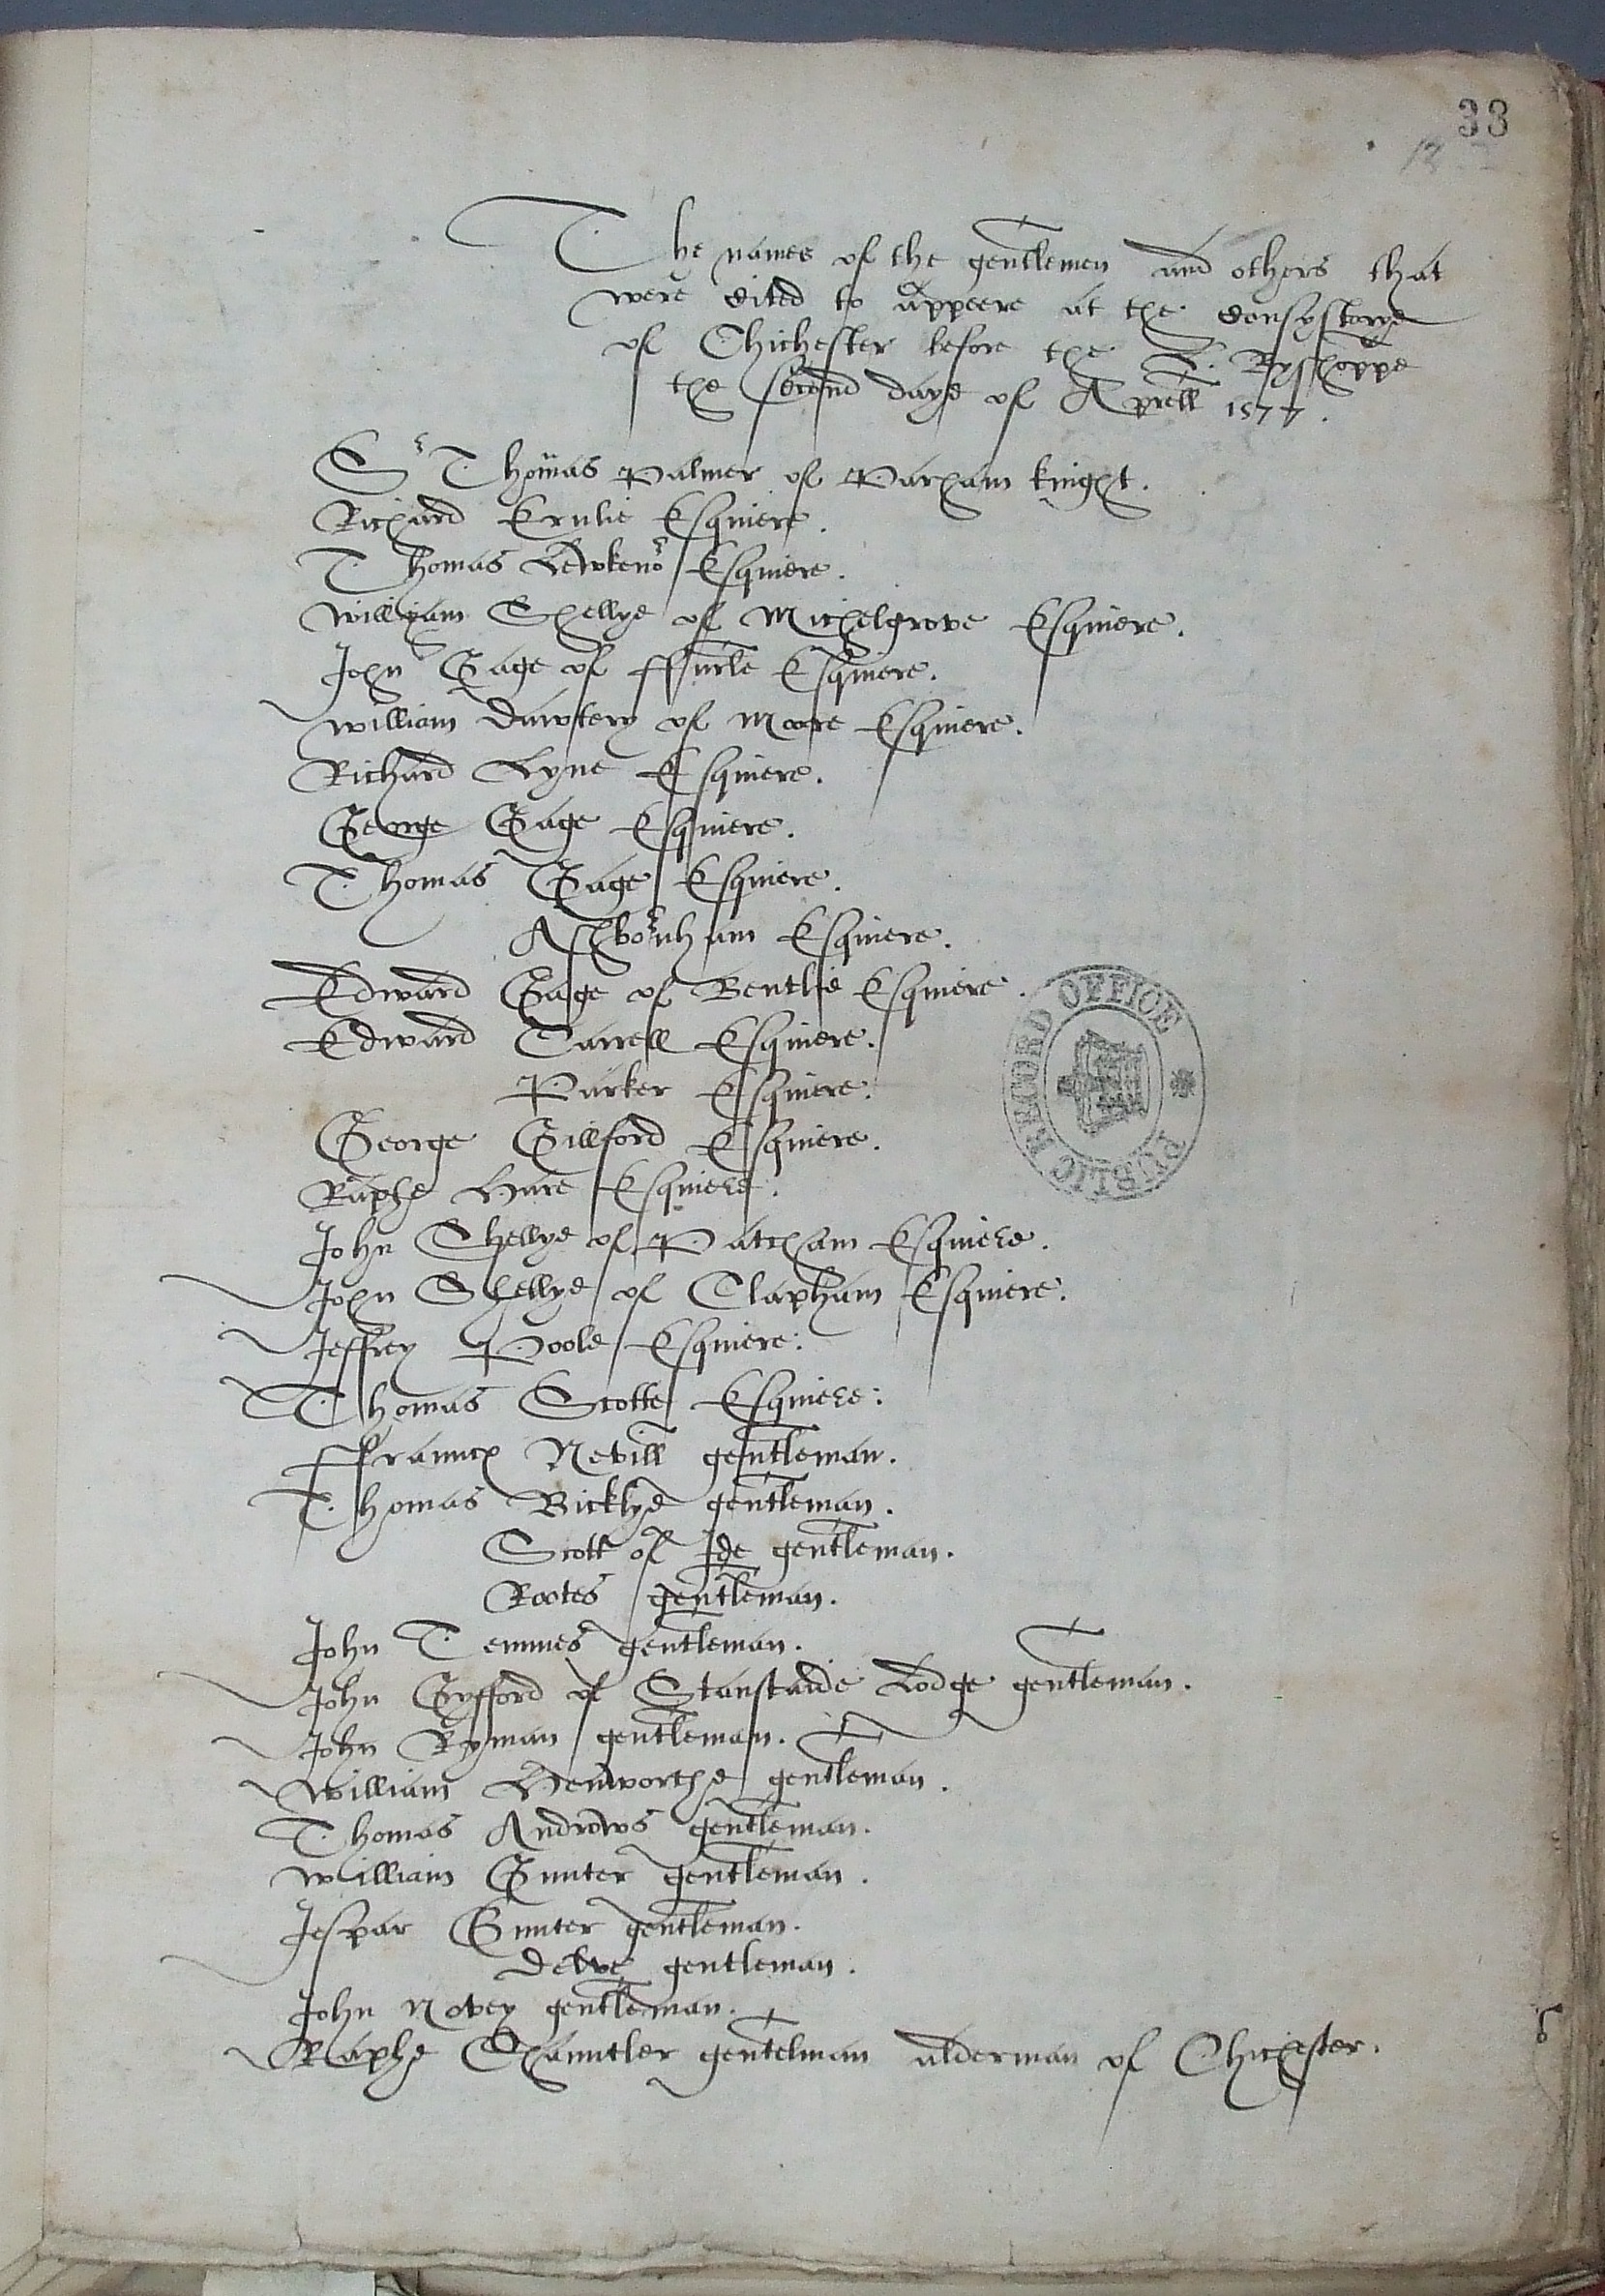 33
The names of the gentlemen and others that
were cited to appeere at the consystorye
of Chichester before the L. Bysshoppe
the second daye of Aprell 1577.
Sr Thomas Palmer of Parham knight.
Richard Ernlie Esquiere.
Thomas Lewkenor Esquiere.
William Shellye of Michelgrove Esquiere.
John Gage of ffurle Esquiere.
William Dawtery of Moore Esquiere.
Richard Lyne Esquiere.
George Gage Esquiere.
Thomas Gage Esquiere.
Ashbornham Esquiere.
Edward Gage of Bentlie Esquiere.
Edward Tarrell Esquiere.
Parker Esquiere.
George Gillford Esquiere.
Raphe Hare Esquiere.
John Shellye of Patcham Esquiere.
John Shellye of Clapham Esquiere.
Jeffrey Poole Esquiere:
Thomas Scotte Esquiere:
ffrauncs Nevill gentleman.
Thomas Bicklye gentleman.
Scott of Ide gentleman.
Rootes gentleman.
John Temmes gentleman.
John Gyfford of Stanstaide Lodge gentleman.
John Ryman gentleman.
William Henworthe gentleman.
Thomas Androws gentleman.
William Gunter gentleman.
Jespar Gunter gentleman.
Delve gentleman.
John Novey gentleman.
Raphe Chauntler gentelman alderman of Chichester.
PUBLIC RECORD OFFICE